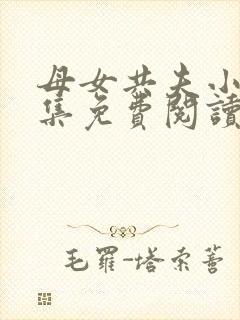 母女共夫小
集免費閱讀
毛羅-塔索蒈